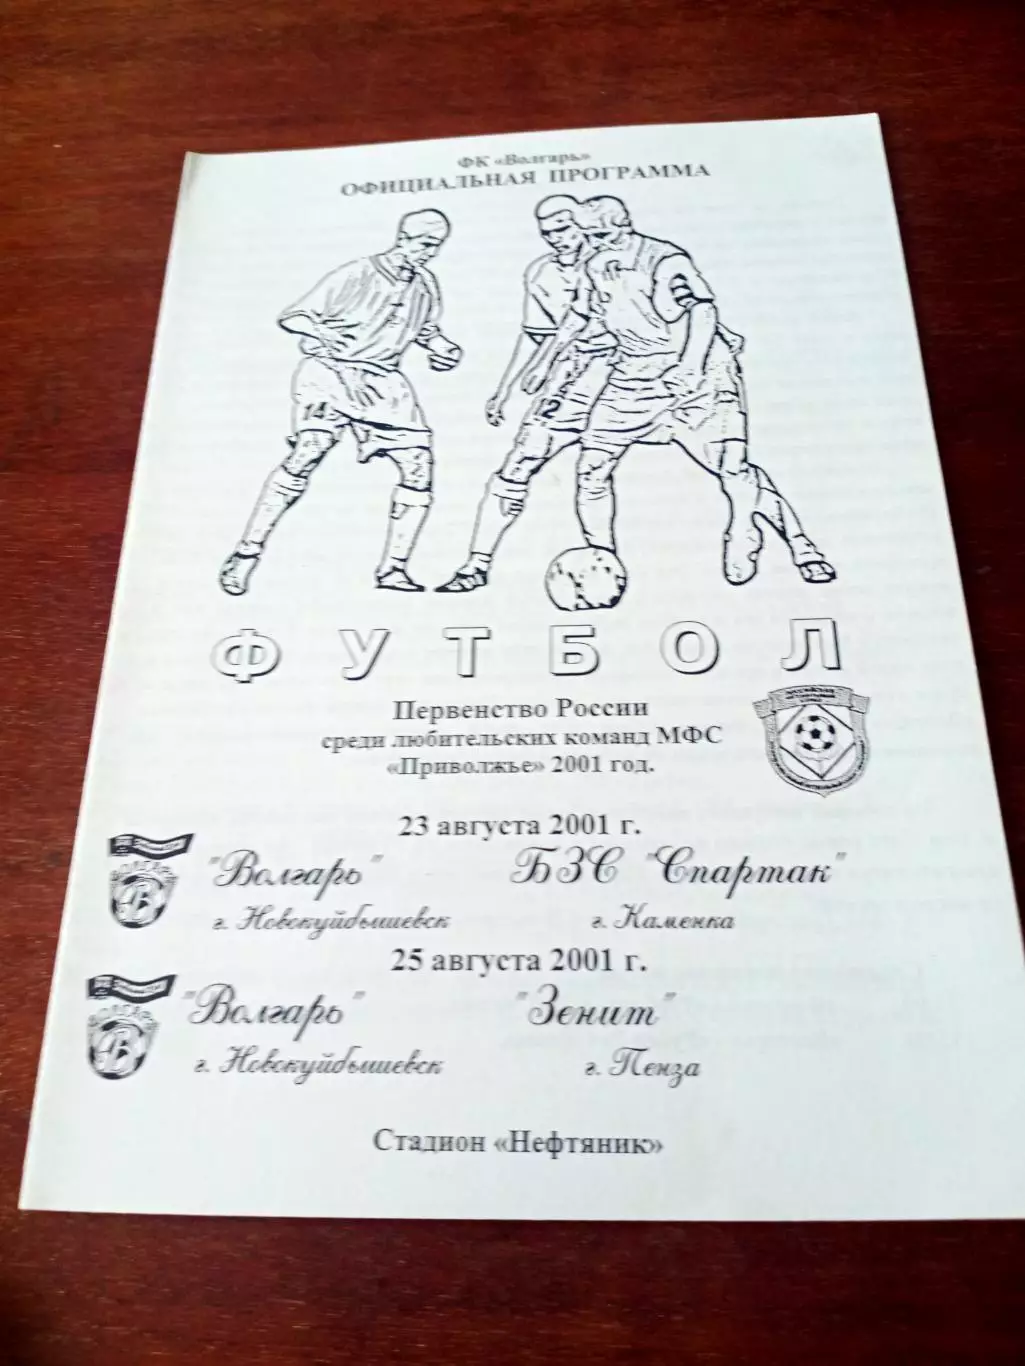 ФК «Волгарь»
ОФИЦИАЛЬНАЯ ПРОГРАММА
14
12
ФУТБОЛ
Первенство России
среди любительских команд МФС
«Приволжье» 2001 год.
23 августа 2001 г.
"Волгарь" БЗС "Спартак"
г. Новокуйбышевск г. Каменка
25 августа 2001 г.
"Волгарь" "Зенит"
г. Новокуйбышевск г. Пенза
Стадион «Нефтяник»